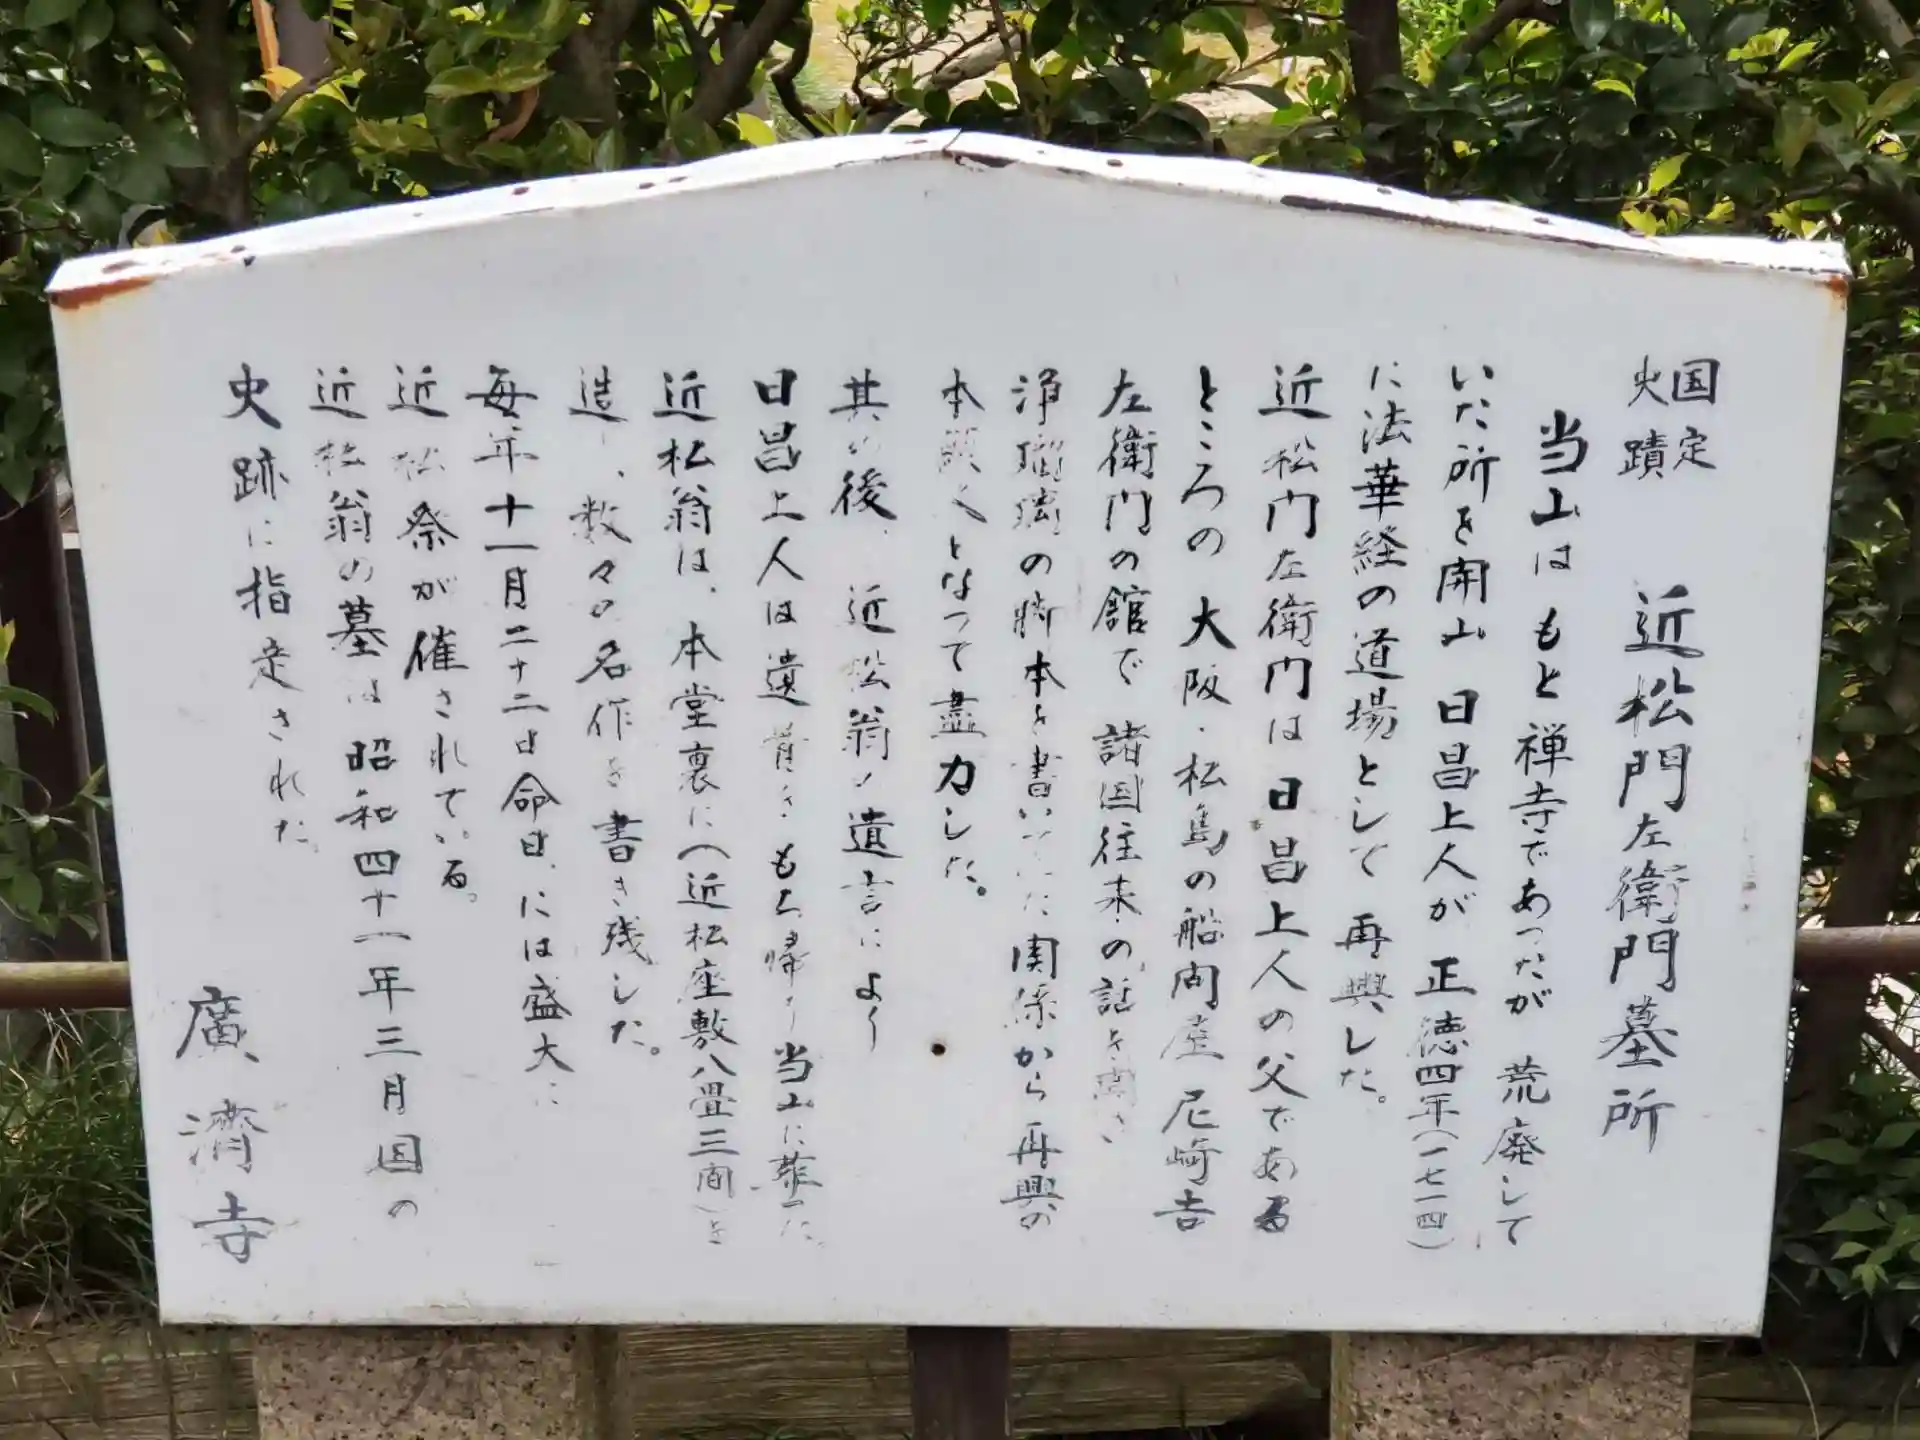 国定史蹟 近松門左衛門墓所
当山はもと禅寺であったが 荒廃して
いた所を開山 日昌上人が 正徳四年(一七一四)
に法華経の道場として 再興した。
近松門左衛門は日昌上人の父である
ところの 大阪・松島の船問屋 尼崎吉
左衛門の館で 諸国往来の話を聞き
浄瑠璃の脚本を書いていた関係から再興の
本願人となって盡力した。
其の後、近松翁ノ遺言により
日昌上人は遺骨をもち帰り当山に葬った。
近松翁は、本堂裏に(近松座敷八畳三間)を
造り、数々の名作を書き残した。
毎年十一月二十二日命日、には盛大に
近松祭が催されている。
近松翁の墓は昭和四十一年三月国の
史跡に指定された。
廣濟寺